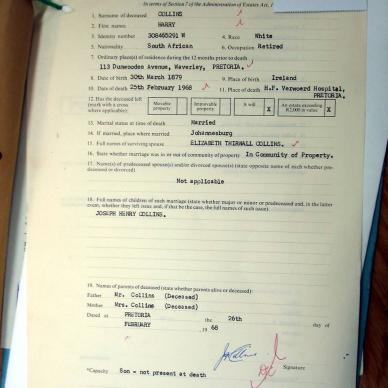 In terms of Section 7 of the Administration of Estates Act, 1
1. Surname of deceased COLLINS
2. First names HARRY
3. Identity number 308465291 W 4. Race White
5. Nationality South African 6. Occupation Retired
7. Ordinary place(s) of residence during the 12 months prior to death
113 Dunwooden Avenue, Waverley, PRETORIA.
8. Date of birth 30th March 1879 9. Place of birth Ireland
10. Date of death 25th February 1968 11. Place of death H.F. Verwoerd Hospital,
PRETORIA.
12. Has the deceased left (mark with a cross where applicable): Movable property Immovable property A will X An estate exceeding R2,000 in value X
13. Marital status at time of death Married
14. If married, place where married Johannesburg
15. Full names of surviving spouse ELIZABETH THIRNALL COLLINS.
16. State whether marriage was in or out of community of property In Community of Property.
17. Name(s) of predeceased spouse(s) and/or divorced spouse(s) (state opposite name of each whether pre-
deceased or divorced)
Not applicable
18. Full names of children of each marriage (state whether major or minor or predeceased and, in the latter
event, whether they left issue and, if that be the case, the full names of such issue).
JOSEPH HENRY COLLINS.
19. Names of parents of deceased (state whether parents alive or deceased):
Father Mr. Collins (Deceased)
Mother Mrs. Collins (Deceased)
Dated at PRETORIA the 26th day of
FEBRUARY 19 68
Signature
*Capacity Son - not present at death